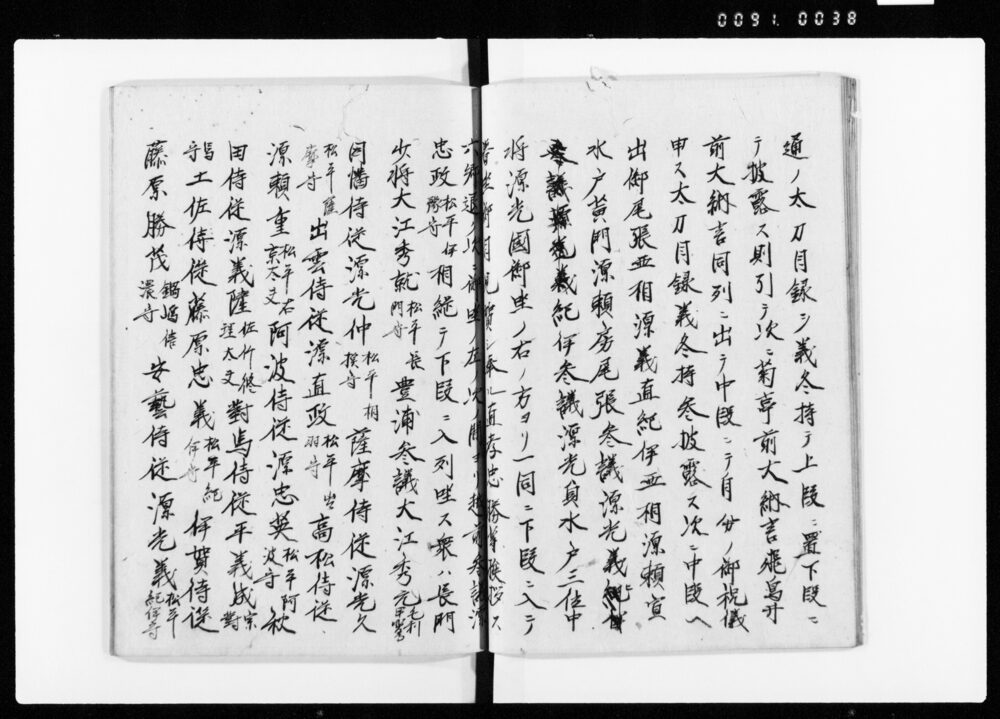 0091. 0038
通ノ太刀目録シ義冬持テ上段ニ置下段ニ
テ披露ス則引テ次ニ菊亭前大納言飛鳥井
前大納言同列ニ出テ中段ニテ自分ノ御祝儀
申ス太刀目録義冬持参披露ス次ニ中段ヘ
出御尾張亜相源義直紀伊亜相源頼宣
水戸黄門源頼房尾張参議源光義
紀伊参議源光貞水戸三位中
将源光国御坐ノ右ノ方ヨリ一同ニ下段ニ入テ
直孝忠勝
六郷通ノ次ニ御坐ノ左ノ次ノ間ヨリ越前参議源
忠政松平伊豫守相継テ下段ニ入列坐ス衆ハ長門
少将大江秀就松平長門守豊浦参議大江秀元毛利甲斐
因幡侍従源光仲松平相模守薩摩侍従源光久
松平薩摩守出雲侍従源直政松平出羽守高松侍従
源頼重松平右京大夫阿波侍従源忠英松平阿波守秋
田侍従源義隆佐竹修理大夫對馬侍従平義成宗對
馬守土佐侍従藤原忠義松平紀伊守伊賀侍従
藤原勝茂鍋島信濃守安藝侍従源光義松平紀伊守